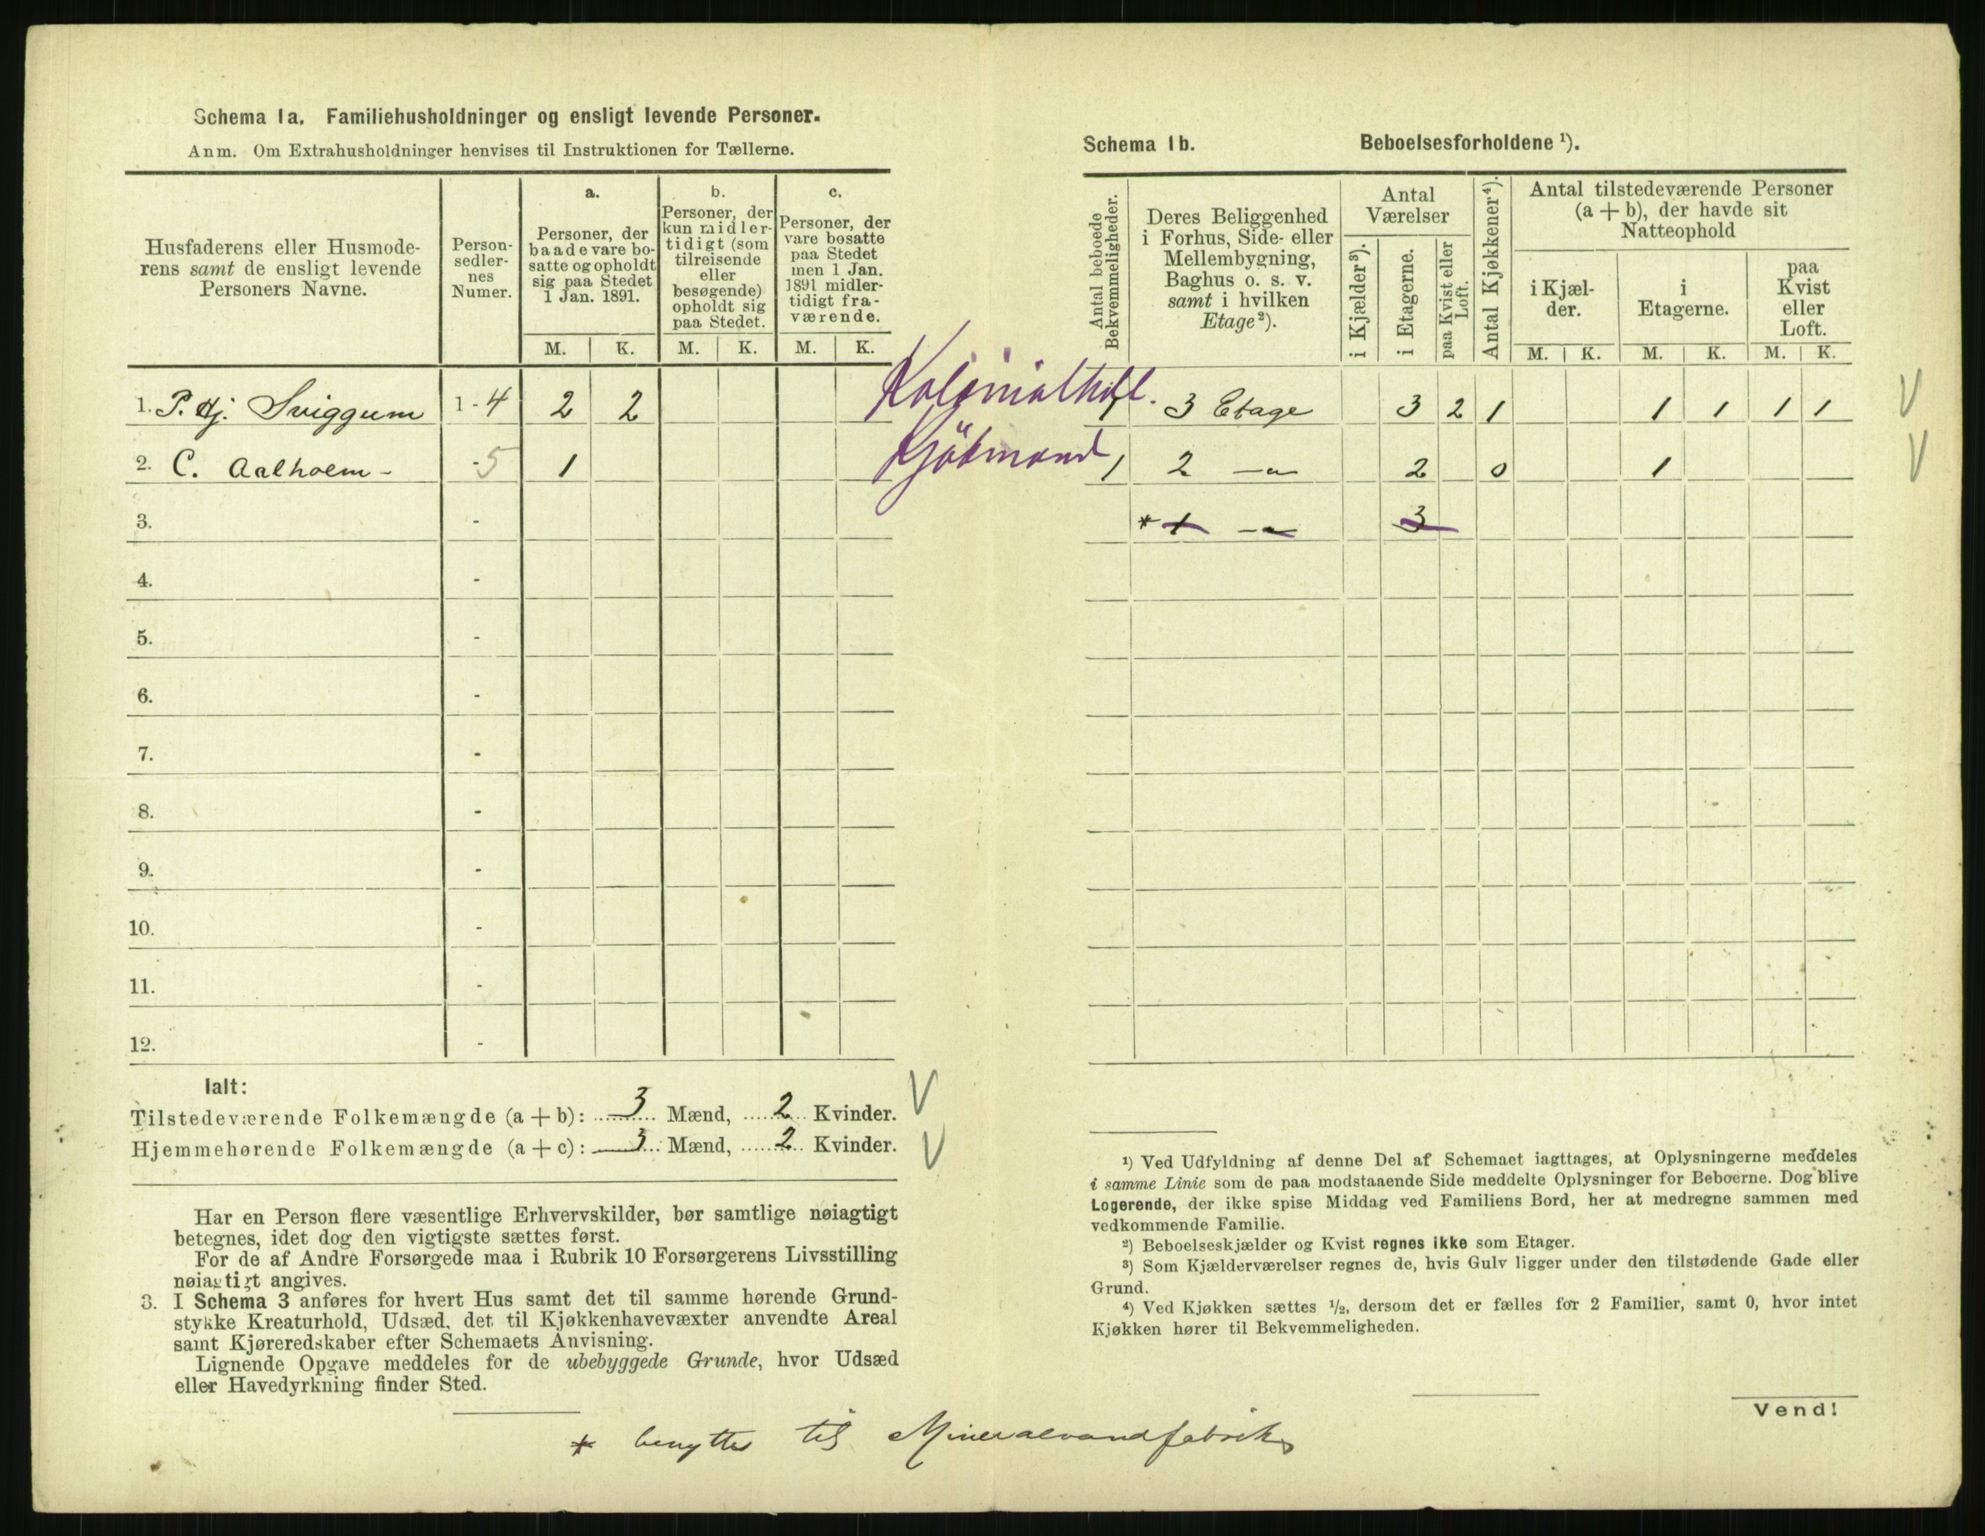 Schema 1a. Familiehusholdninger og ensligt levende Personer.
Anm. Om Extrahusholdninger henvises til Instruktionen for Tællerne.
Husfaderens eller Husmode-
rens samt de ensligt levende
Personers Navne.
Person-
sedler-
nes
Numer.
a.
Personer, der
baade vare bo-
satte og opholdt
sig paa Stedet
1 Jan. 1891.
b.
Personer, der
kun midler-
tidigt (som
tilreisende
eller
besøgende)
opholdt sig
paa Stedet.
c.
Personer, der
vare bosatte
paa Stedet
men 1 Jan.
1891 midler-
tidigt fra-
værende.
M. K. M. K. M. K.
1. P. Hj. Sviggum 1-4 2 2
2. C. Aalholm - -5 1
3. -
4. -
5. -
6. -
7. -
8. -
9. -
10. -
11. -
12. -
Ialt:
Tilstedeværende Folkemængde (a + b): 3 Mænd, 2 Kvinder.
Hjemmehørende Folkemængde (a + c): 3 Mænd, 2 Kvinder.
Har en Person flere væsentlige Erhvervskilder, bør samtlige nøiagtigt
betegnes, idet dog den vigtigste sættes først.
For de af Andre Forsørgede maa i Rubrik 10 Forsørgerens Livsstilling
nøiagtigt angives.
3. I Schema 3 anføres for hvert Hus samt det til samme hørende Grund-
stykke Kreaturhold, Udsæd, det til Kjøkkenhavevæxter anvendte Areal
samt Kjøreredskaber efter Schemaets Anvisning.
Lignende Opgave meddeles for de ubebyggede Grunde, hvor Udsæd
eller Havedyrkning finder Sted.
Schema 1b. Beboelsesforholdene ¹).
Antal beboede
Bekvemmeligheder.
Deres Beliggenhed
i Forhus, Side- eller
Mellembygning,
Baghus o. s. v.
samt i hvilken
Etage²).
Antal
Værelser
i Kjælder³).
i Etagerne.
paa Kvist eller
Loft.
Antal Kjøkkener⁴).
Antal tilstedeværende Personer
(a + b), der havde sit
Natteophold
i Kjæl-
der.
i
Etagerne.
paa
Kvist
eller
Loft.
M. K. M. K. M. K.
Kolonialhdl.
1 3 Etage 3 2 1 1 1 1 1
Kjöbmand
1 2 —"— 2 0 1
* 1 —"— 3
¹) Ved Udfyldning af denne Del af Schemaet iagttages, at Oplysningerne meddeles
i samme Linie som de paa modstaaende Side meddelte Oplysninger for Beboerne. Dog blive
Logerende, der ikke spise Middag ved Familiens Bord, her at medregne sammen med
vedkommende Familie.
²) Beboelseskjælder og Kvist regnes ikke som Etager.
³) Som Kjælderværelser regnes de, hvis Gulv ligger under den tilstødende Gade eller
Grund.
⁴) Ved Kjøkken sættes ½, dersom det er fælles for 2 Familier, samt 0, hvor intet
Kjøkken hører til Bekvemmeligheden.
Vend!
* benyttes til Mineralvandfabrik